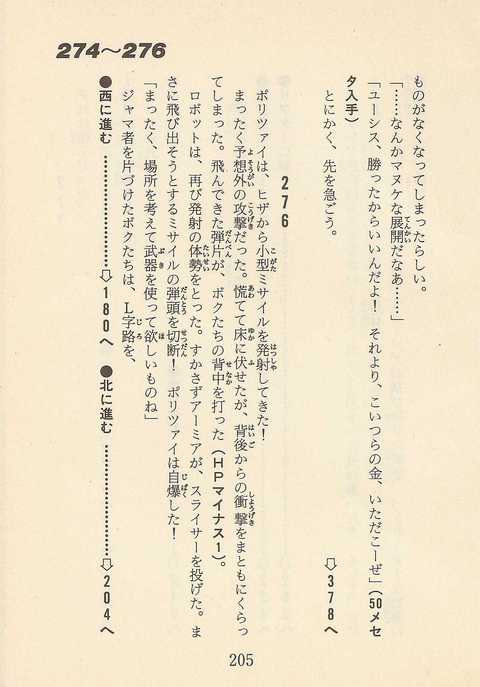 274～276
ものがなくなってしまったらしい。
「……なんかマヌケな展開だなあ……」
「ユーシス、勝ったからいいんだよ！　それより、こいつらの金、いただこーぜ」（50メセ
タ入手）
とにかく、先を急ごう。
⇨378へ
276
ポリツァイは、ヒザから小型ミサイルを発射してきた！
まったく予想外の攻撃だった。慌てて床に伏せたが、背後からの衝撃をまともにくらっ
てしまった。飛んできた弾片が、ボクたちの背中を打った（HPマイナス1）。
ロボットは、再び発射の体勢をとった。すかさずアーミアが、スライサーを投げた。ま
さに飛び出そうとするミサイルの弾頭を切断！　ポリツァイは自爆した！
「まったく、場所を考えて武器を使って欲しいものね」
ジャマ者を片づけたボクたちは、L字路を、
●西に進む…………………⇨180へ　●北に進む…………………⇨204へ
205